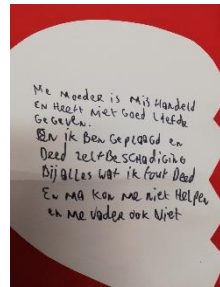 Me moeder is Mishandeld
en Heeft niet Goed Liefde
Gegeven.
En ik Ben Geplaagd en
Deed zelfBeschadiging
Bij alles wat ik fout Deed
En ma kon me niet Helpen
en me vader ook Niet